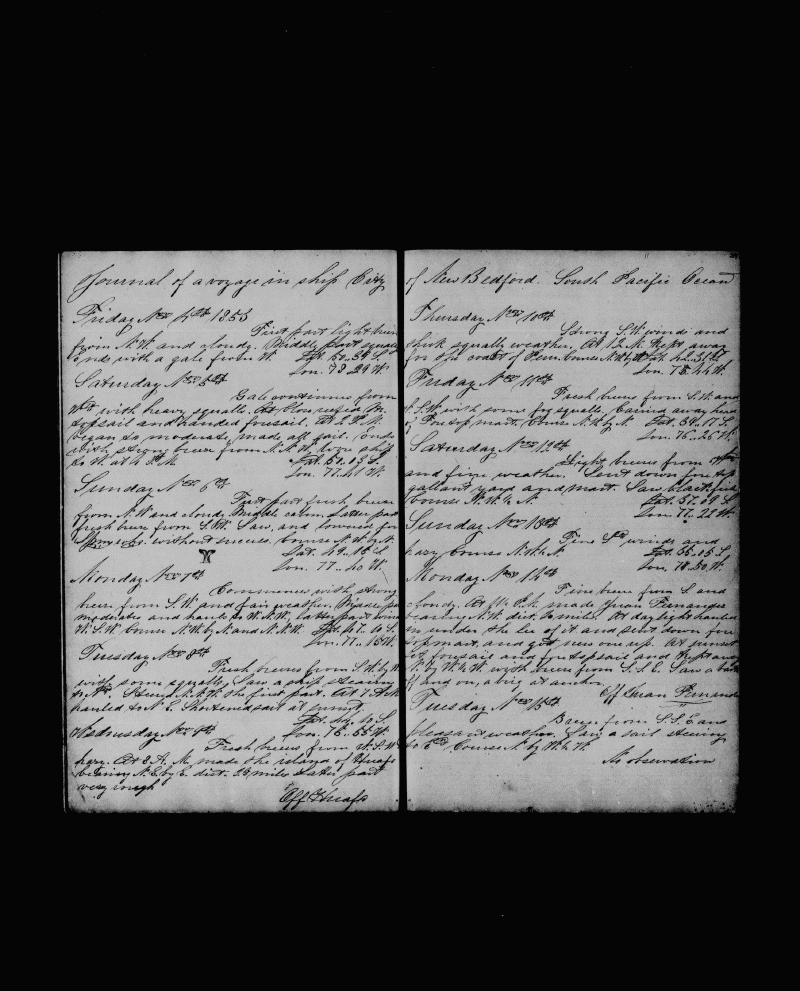 Journal of a voyage in ship City
Friday Nov 4th 1853
First part light breeze
from N.W. and cloudy. Middle part squally
Ends with a gale from W. Lat. 50.54 S.
Lon. 78 29 W.
Saturday Nov 5th
Gale continues from
Wd with heavy squalls. At close reefed M.
topsail and handed foresail. At 2 P.M.
began to moderate, made all sail. Ends
with strong breeze from N.N.W. wore ship
to W. at 4 P.M.
Lon. 77.41 W.
Sunday Nov 6th
First part fresh breeze
from N.W. and cloudy. Middle calm. Latter part
fresh breeze from S.W. Saw, and lowered for
without success. Course N.W. by N.
Lat. 49..15 S.
Lon. 77..40 W.
Monday Nov 7th
Commences with strong
breeze from S.W. and fair weather. Middle part
moderate and hauls to W.N.W. Latter part from
W.S.W. Course N.W. by N. and N.N.W. Lat. 47..10 S.
Lon. 77..15 W.
Tuesday Nov 8th
Fresh breezes from S.W. by W.
with some squalls, Saw a ship steering
to Nd. Steering N.N.W. the first part. At 7 A.M.
hauled to N.E. Shortened sail at sunset.
Lon. 76..55 W.
Wednesday Nov 9th
Fresh breezes from W.S.W.
hazy. At 8 A.M. made the island of Huafo
bearing N.E. by E. dist. 25 miles Latter part
very rough
Off Huafo
of New Bedford. South Pacific Ocean
Thursday Nov 10th
Strong S.W. winds and
thick squally weather. At 12 M. kept away
for the coast of Peru. Course N.W. by N. Lat. 42..31 S.
Lon. 75.44 W.
Friday Nov 11th
Fresh breeze from S.W. and
S.S.W. with some fog squalls. Carried away head
of Foretop mast. Course N.W. by N. Lat. 39..17 S.
Lon. 76..26 W.
Saturday Nov 12th
Light breezes from
and fine weather. Sent down foretop
gallant yard and mast. Saw blackfish
Course N.W. ½ N. Lat. 37.09 S.
Lon. 77..22 W.
Sunday Nov 13th
Fine Sd winds and
hazy Course N.W. ½ N. Lat. 35..05 S.
Lon. 78.50 W.
Monday Nov 14th
Fine breeze from S. and
cloudy. At P.M. made Juan Fernandez
bearing N.W. dist. miles. At daylight hauled
in under the lee of it and sent down fore
topmast, and got new one up. At sunset
set foresail and foretopsail and kept away
N. by W. ½ W. with breeze from S.S.E. Saw a bark
off and on, a brig at anchor.
Off Juan Fernandez
Tuesday Nov 15th
Breeze from S.S.E. and
pleasant weather. Saw a sail steering
to Ed. Course N. by W. ½ W.
No observation